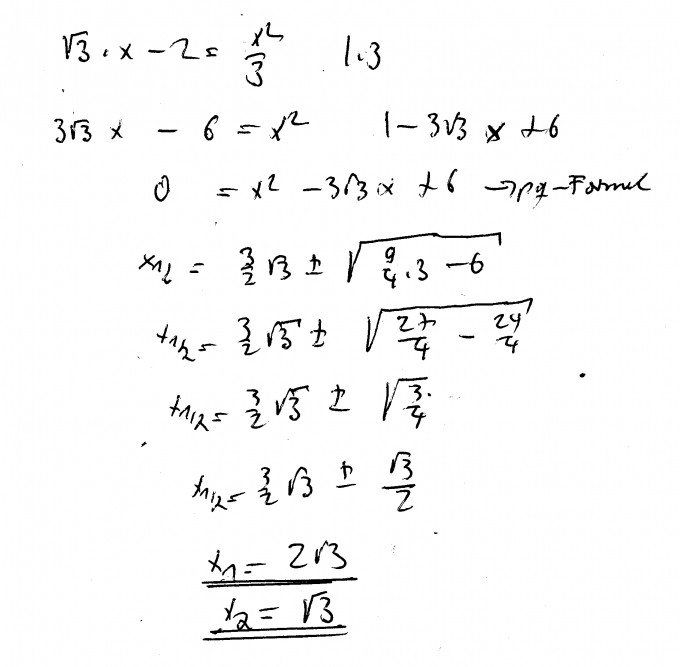 √3 · x − 2 = x²/3 | · 3
3√3 x − 6 = x² | − 3√3 x + 6
0 = x² − 3√3 x + 6 → pq-Formel
x₁,₂ = 3/2 √3 ± √(9/4 · 3 − 6)
x₁,₂ = 3/2 √3 ± √(27/4 − 24/4)
x₁,₂ = 3/2 √3 ± √(3/4)
x₁,₂ = 3/2 √3 ± √3/2
x₁ = 2√3
x₂ = √3